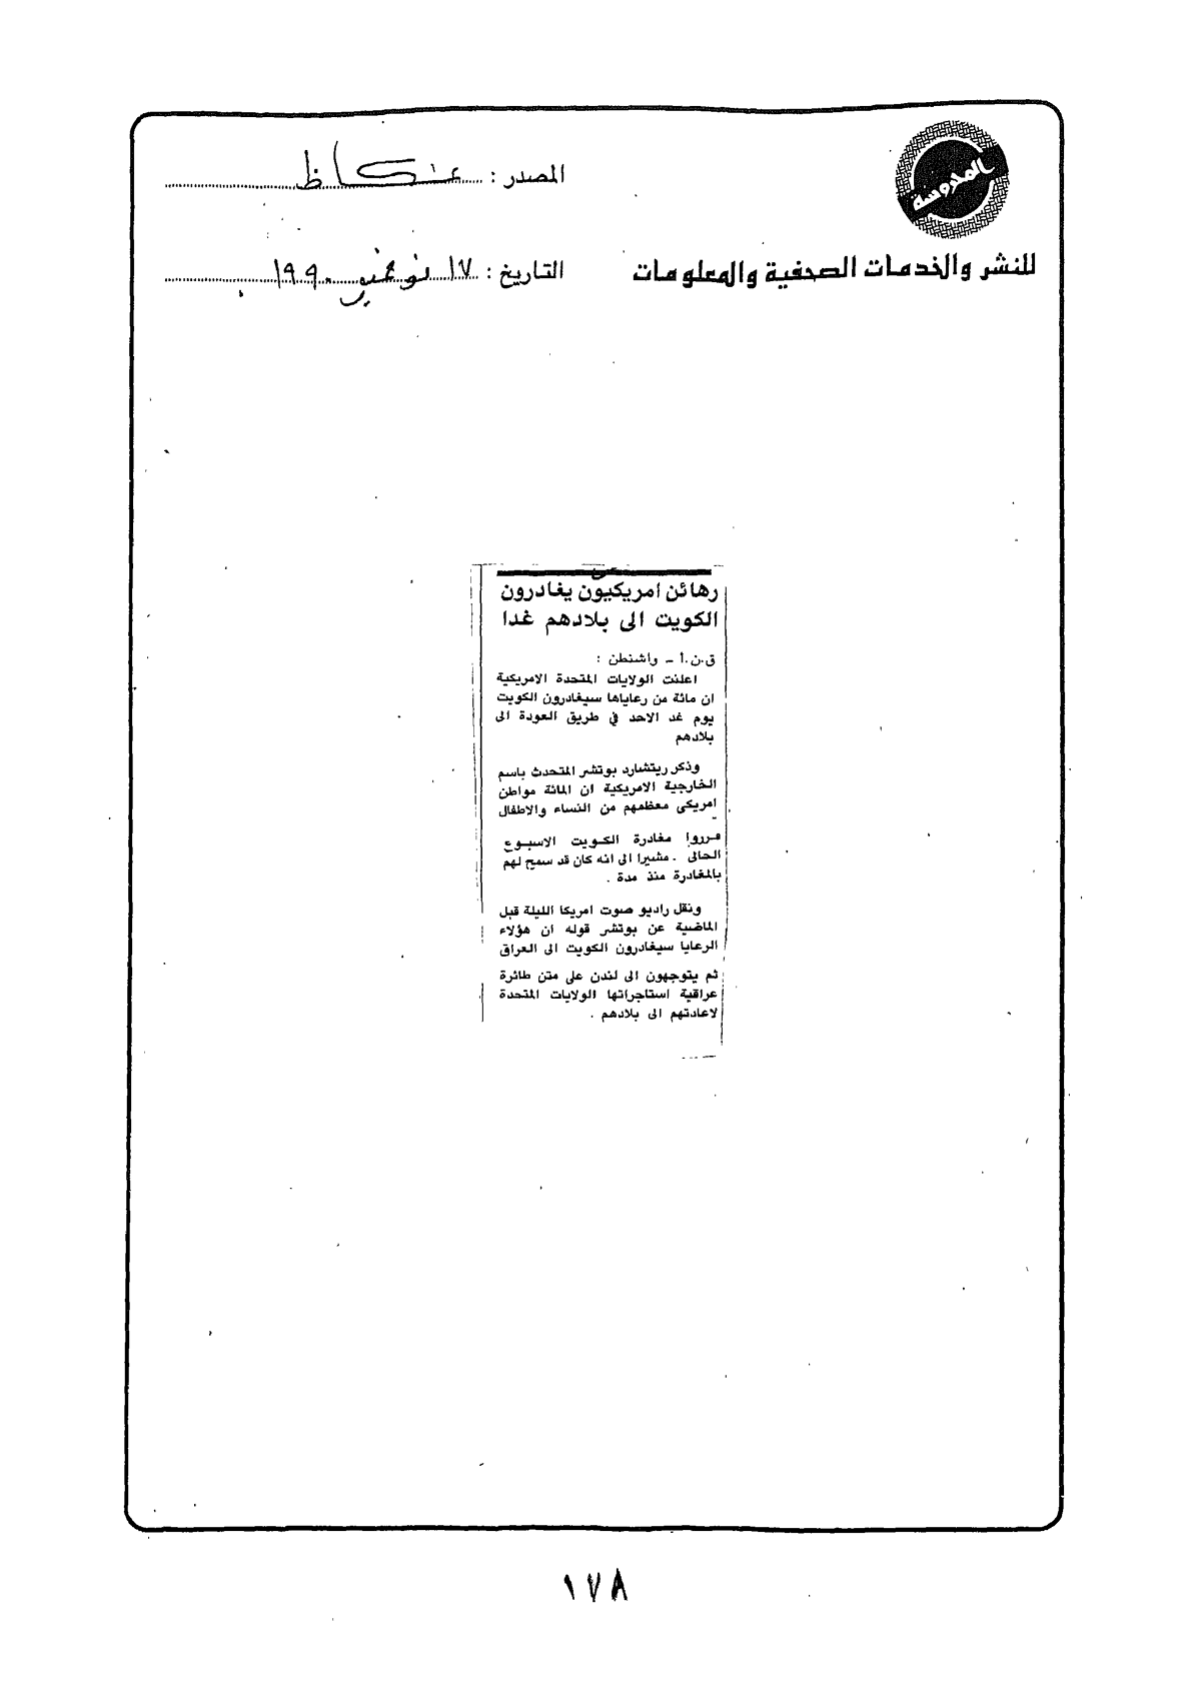 المحروسة
للنشر والخدمات الصحفية والمعلومات
المصدر : عكاظ
التاريخ : ١٧ نوفمبر ١٩٩٠
رهائن امريكيون يغادرون
الكويت الى بلادهم غدا
ق.ن.أ - واشنطن :
اعلنت الولايات المتحدة الامريكية
ان مائة من رعاياها سيغادرون الكويت
يوم غد الاحد في طريق العودة الى
بلادهم
وذكر ريتشارد بوتشر المتحدث باسم
الخارجية الامريكية ان المائة مواطن
امريكي معظمهم من النساء والاطفال
قرروا مغادرة الكويت الاسبوع
الحالى . مشيرا الى انه كان قد سمح لهم
بالمغادرة منذ مدة .
ونقل راديو صوت امريكا الليلة قبل
الماضية عن بوتشر قوله ان هؤلاء
الرعايا سيغادرون الكويت الى العراق
ثم يتوجهون الى لندن على متن طائرة
عراقية استاجراتها الولايات المتحدة
لاعادتهم الى بلادهم .
١٧٨